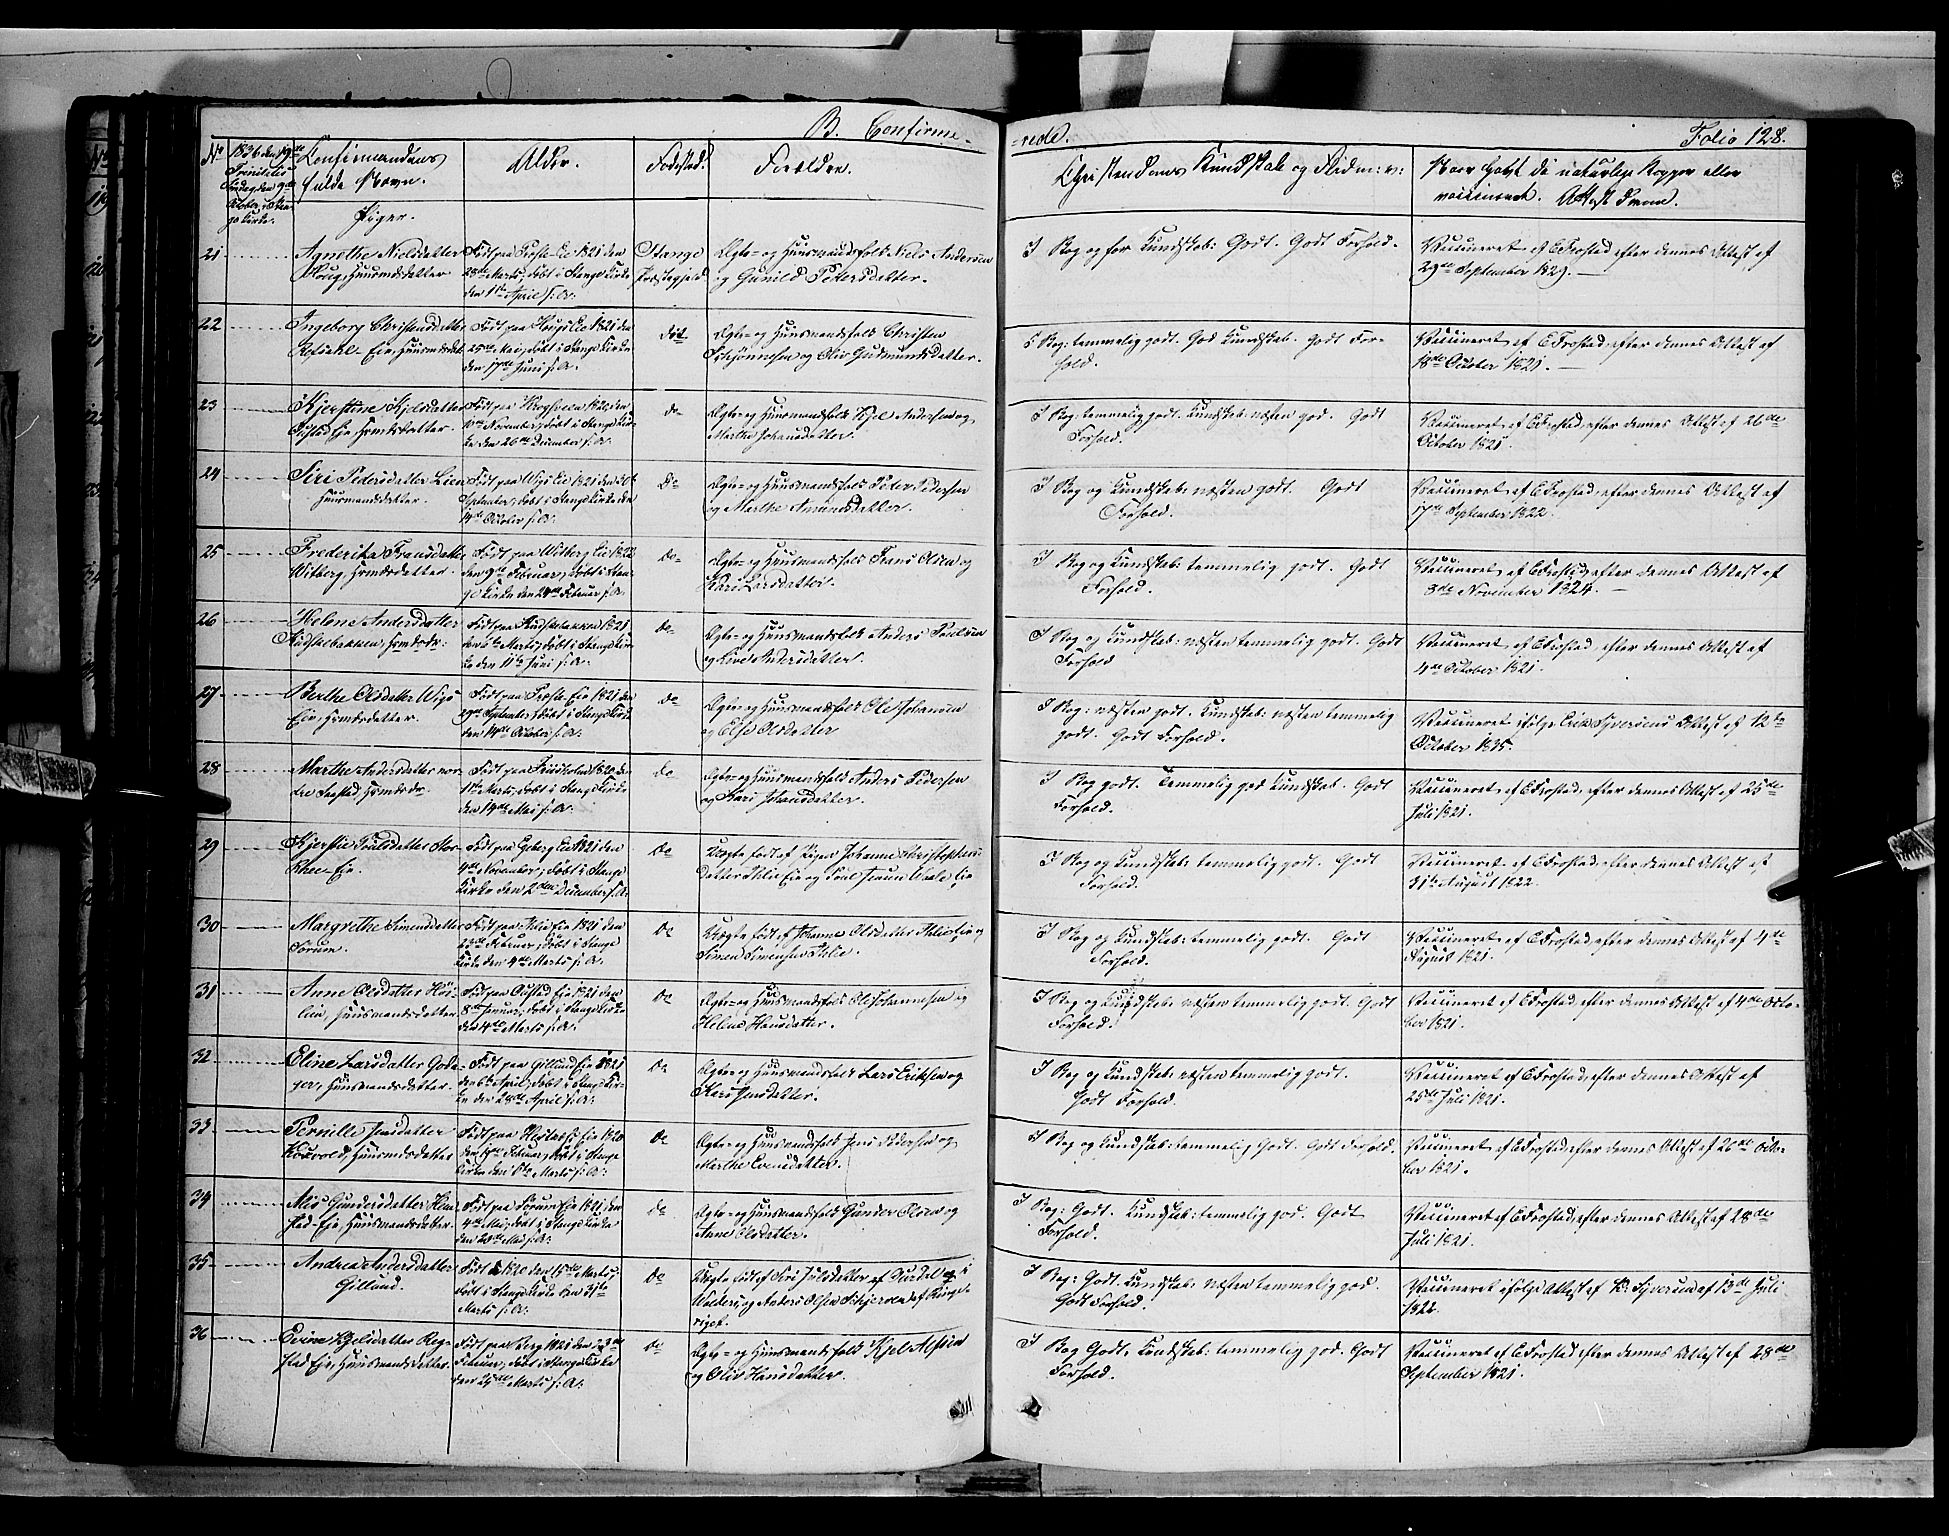 B. Confirme-
=rede.
Folio 128.
No
1836 den 19de
Trinitatis
Søndag den 9de
October, i Stan-
ge Kirke.
Confirmandens
fulde Navn.
Alder.
Fødested.
Forældre.
Christendoms Kundskab og Flid m: v:
Naar havt de naturlige Kopper eller
vaccineret. Attest derom.
Piger.
21
Agnethe Nielsdatter
Huusmdsdatter
Født paa Eie 1821 den
28de Marts, døbt i Stange Kirke
den 1ste April s: A:
Stange
Præstegjeld
Ægte- og Huusmandsfolk Niels Andersen
og Gunild Pedersdatter.
I Bog og for Kundskab: Godt. Godt Forhold.
Vaccineret af C Frostad, efter dennes Attest af
29de September 1829.
22
Ingeborg Christensdatter
Eie, Huusmdsdat
Født paa Eie 1821 den
25de Mai, døbt i Stange Kirke
den 17de Juni s: A:
dito
Ægte- og Huusmandsfolk Christen
og Oliv Gudmundsdatter.
I Bog: temmelig godt. God Kundskab. Godt For-
hold.
Vaccineret af C Frostad, efter dennes Attest af
18de October 1821.
23
Kjerstine Kjelsdatter
Eie Hsmdsdatter.
Født paa 1820 den
November, døbt i Stange Kir-
ke den 26de December s: A:
do
Ægte- og Huusmandsfolk Kjel Andersen og
Marthe Johansdatter.
I Bog: temmelig godt. Kundskab: næsten god. Godt
Forhold.
Vaccineret af C Frostad, efter dennes Attest af 26de
October 1821.
24
Siri Pedersdatter Lien
Huusmandsdatter.
Født paa Eie 1821 den
September, døbt i Stange Kirke den
14de October s: A:
Do
Ægte- og Huusmandsfolk Peder Pedersen
og Marthe Amundsdatter.
I Bog og Kundskab: næsten godt. Godt
Forhold.
Vaccineret af C Frostad, efter dennes Attest af
17de September 1822.
25
Frederikke Fransdatter
Witberg, Hsmdsdatter.
Født paa Witberg Eie 1822
den 9de Februar, døbt i Stan-
ge Kirke den 24de Februar s: A:
Do
Ægte- og Huusmandsfolk Frans Olsen og
Kari Larsdatter.
I Bog og Kundskab: temmelig godt. Godt
Forhold.
Vaccineret af C Frostad, efter dennes Attest af
3die November 1824.
26
Helene Andersdatter
Hsmdsdr:
Født paa 1821
den Marts, døbt i Stange Kir-
ke den 11te Juni s: A:
Do
Ægte- og Huusmandsfolk Anders Poulsen
og Live Andersdatter.
I Bog og Kundskab: næsten temmelig godt. Godt
Forhold
Vaccineret af C Frostad, efter dennes Attest af
4de October 1821.
27
Berthe Olsdatter
Eie, Hsmdsdatter.
Født paa Eie 1821 den
29de September, døbt i Stange Kirke
den 14de October s: A:
do
Ægte- og Huusmandsfolk Ole Johansen
og Else Olsdatter
I Bog: næsten godt. Kundskab: næsten temmelig
godt. Godt Forhold.
Vaccineret ifølge Erik Syversens Attest af 12te
October 1825.
28
Marthe Andersdatter nor-
dre Hsmdsdr
Født paa 1820 den
Marts, døbt i Stange Kirke
den 14de Mai s: A:
do
Ægte- og Huusmandsfolk Anders Pedersen
og Kari Johansdatter.
I Bog godt. Temmelig god Kundskab. Godt
Forhold.
Vaccineret af C Frostad, efter dennes Attest af 25de
Juli 1821.
29
Kjerstie Poulsdatter
Eie.
Født paa Eie 1821 den
4de November, døbt i Stange
Kirke den 2den December s: A:
Do
Uægte født af Pigen Johanne Christophers-
datter Eie og Poul Eie
I Bog og Kundskab: temmelig godt. Godt
Forhold.
Vaccineret af C Frostad efter dennes Attest af
31te August 1822.
30
Margrethe Simensdatter
Sørum.
Født paa Eie 1821 den
22de Februar, døbt i Stange
Kirke den 4de Marts s: A:
Do
Uægte født af Johanne Olsdatter Eie og
Simen Simensen
I Bog og Kundskab: temmelig godt. Godt
Forhold.
Vaccineret af C Frostad, efter dennes Attest af 4de
August 1821.
31
Anne Olsdatter Høi-
lien, Huusmandsdatter
Født paa Eie 1821 den
8de Januar, døbt i Stange Kirke
den 4de Marts s: A:
Do
Ægte- og Huusmandsfolk Ole Johannesen og
Helene Hansdatter.
I Bog og Kundskab: næsten temmelig godt. Godt
Forhold.
Vaccineret af C Frostad, efter dennes Attest af 4de Octo-
ber 1821.
32
Eline Larsdatter Gode-
ger, Huusmandsdatter.
Født paa Gillund Eie 1821
den 6te April, døbt i Stange Kir-
ke den 28de April s: A:
Do
Ægte- og Huusmandsfolk Lars Eriksen og
Kari Jensdatter.
I Bog og Kundskab: næsten temmelig godt.
Godt Forhold.
Vaccineret af C Frostad, efter dennes Attest af
25de Juli 1821.
33
Pernille Jensdatter
Huusmandsdatter
Født paa Eie 1820
den Februar, døbt i Stange
Kirke den Marts s: A:
Do
Ægte- og Huusmandsfolk Jens Pedersen og
Marthe Evensdatter.
I Bog og Kundskab: temmelig Godt. Godt Forhold.
Vaccineret af C Frostad efter dennes Attest af 26de Octo-
ber 1821.
34
Gundersdatter
Eie, Huusmandsdatter.
Født paa Sørum Eie 1821 den
4de Mai, døbt i Stange Kirke
den 20de Mai s: A:
do
Ægte- og Huusmandsfolk Gunder Olsen og
Anne Olsdatter.
I Bog: Godt. Kundskab: temmelig god. Godt
Forhold.
Vaccineret af C Frostad, efter dennes Attest af 28de
Juli 1821.
35
Andrea Andersdatter
Gillund.
Født 1820 den 15de Marts,
døbt i Stange Kirke den 31te
Marts s: A:
Do
Uægte født af Siri Julsdatter af
og Anders Olsen af Ringe-
riget.
I Bog: Godt. Kundskab: næsten temmelig god.
Godt Forhold.
Vaccineret ifølge Attest af E: Syversen af 13de Juli
1822.
36
Kjelsdatter
Eie, Huusmandsdatter.
Født paa Berg 1821 den 23de
Februar, døbt i Stange Kirke
den 25de Marts s: A:
do
Ægte- og Huusmandsfolk Kjel
og Oliv Hansdatter.
I Bog Godt. Kundskab: temmelig god. Godt
Forhold.
Vaccineret af C Frostad efter dennes Attest af 28de
September 1821.